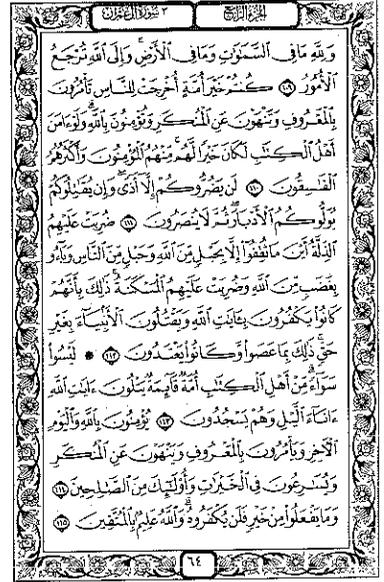 ٣ سورة آل عمران
الجزء الرابع
وَلِلَّهِ مَا فِى ٱلسَّمَٰوَٰتِ وَمَا فِى ٱلْأَرْضِ ۚ وَإِلَى ٱللَّهِ تُرْجَعُ
ٱلْأُمُورُ ١٠٩ كُنتُمْ خَيْرَ أُمَّةٍ أُخْرِجَتْ لِلنَّاسِ تَأْمُرُونَ
بِٱلْمَعْرُوفِ وَتَنْهَوْنَ عَنِ ٱلْمُنكَرِ وَتُؤْمِنُونَ بِٱللَّهِ ۗ وَلَوْ ءَامَنَ
أَهْلُ ٱلْكِتَٰبِ لَكَانَ خَيْرًا لَّهُم ۚ مِّنْهُمُ ٱلْمُؤْمِنُونَ وَأَكْثَرُهُمُ
ٱلْفَٰسِقُونَ ١١٠ لَن يَضُرُّوكُمْ إِلَّآ أَذًى ۖ وَإِن يُقَٰتِلُوكُمْ
يُوَلُّوكُمُ ٱلْأَدْبَارَ ثُمَّ لَا يُنصَرُونَ ١١١ ضُرِبَتْ عَلَيْهِمُ
ٱلذِّلَّةُ أَيْنَ مَا ثُقِفُوٓا۟ إِلَّا بِحَبْلٍ مِّنَ ٱللَّهِ وَحَبْلٍ مِّنَ ٱلنَّاسِ وَبَآءُو
بِغَضَبٍ مِّنَ ٱللَّهِ وَضُرِبَتْ عَلَيْهِمُ ٱلْمَسْكَنَةُ ۚ ذَٰلِكَ بِأَنَّهُمْ
كَانُوا۟ يَكْفُرُونَ بِـَٔايَٰتِ ٱللَّهِ وَيَقْتُلُونَ ٱلْأَنۢبِيَآءَ بِغَيْرِ
حَقٍّ ۚ ذَٰلِكَ بِمَا عَصَوا۟ وَّكَانُوا۟ يَعْتَدُونَ ١١٢ ۞ لَيْسُوا۟
سَوَآءً ۗ مِّنْ أَهْلِ ٱلْكِتَٰبِ أُمَّةٌ قَآئِمَةٌ يَتْلُونَ ءَايَٰتِ ٱللَّهِ
ءَانَآءَ ٱلَّيْلِ وَهُمْ يَسْجُدُونَ ١١٣ يُؤْمِنُونَ بِٱللَّهِ وَٱلْيَوْمِ
ٱلْءَاخِرِ وَيَأْمُرُونَ بِٱلْمَعْرُوفِ وَيَنْهَوْنَ عَنِ ٱلْمُنكَرِ
وَيُسَٰرِعُونَ فِى ٱلْخَيْرَٰتِ وَأُو۟لَٰٓئِكَ مِنَ ٱلصَّٰلِحِينَ ١١٤
وَمَا يَفْعَلُوا۟ مِنْ خَيْرٍ فَلَن يُكْفَرُوهُ ۗ وَٱللَّهُ عَلِيمٌۢ بِٱلْمُتَّقِينَ ١١٥
٦٤